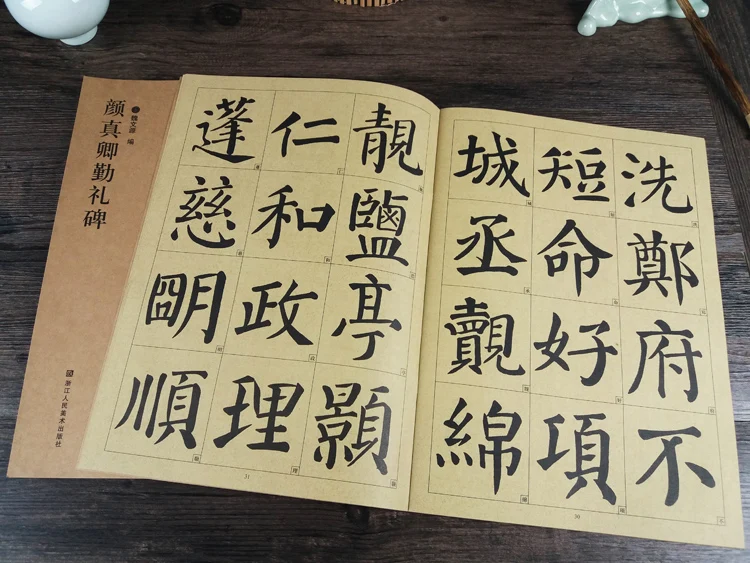 颜真卿勤礼碑
魏文源 编
浙江人民美术出版社
洗鄭府不
短命好項
城丞覿綿
30
靚鹽亭顥
仁和政理
蓬慈朙順
31